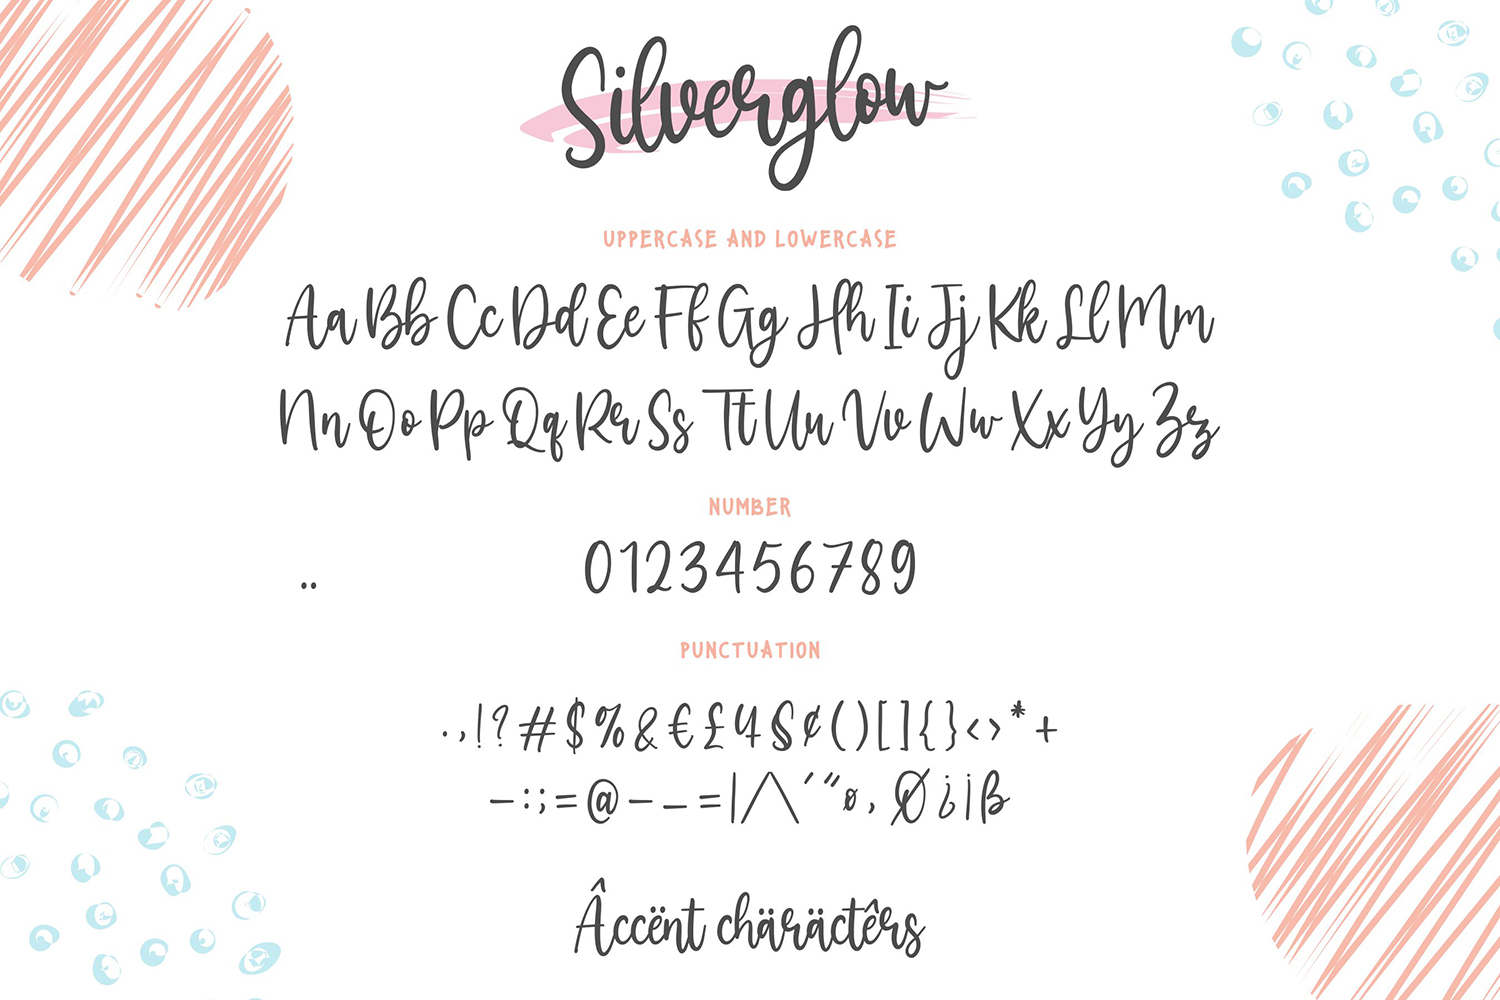 Silverglow
UPPERCASE AND LOWERCASE
Aa Bb Cc Dd Ee Ff Gg Hh Ii Jj Kk Ll Mm
Nn Oo Pp Qq Rr Ss Tt Uu Vv Ww Xx Yy Zz
NUMBER
0123456789
..
PUNCTUATION
.,!?#$%&€£4§¢()[]{}<>*+
–:;=@–_=|/\'"ø,Ø¿¡ß
Âccënt chäräctêrs